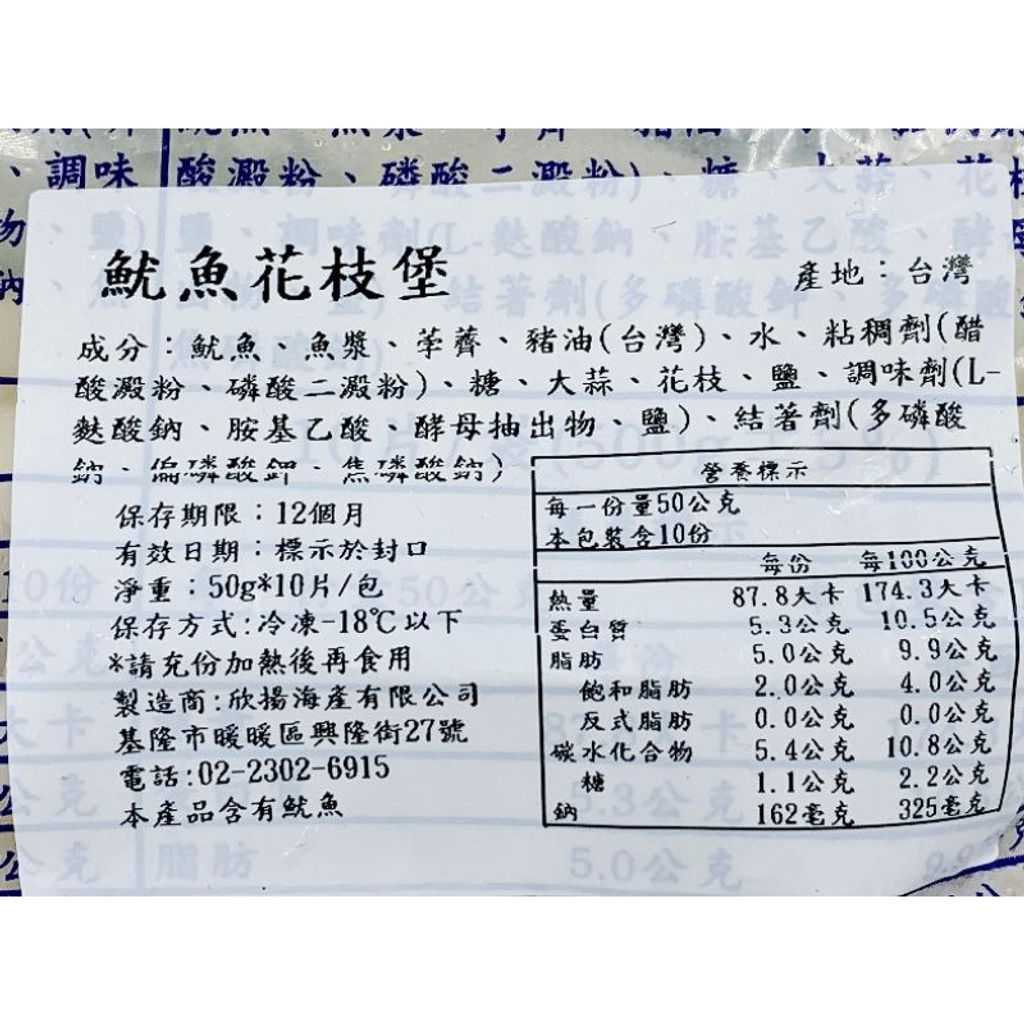 魷魚花枝堡
產地：台灣
成分：魷魚、魚漿、荸薺、豬油(台灣)、水、粘稠劑(醋
酸澱粉、磷酸二澱粉)、糖、大蒜、花枝、鹽、調味劑(L-
麩酸鈉、胺基乙酸、酵母抽出物、鹽)、結著劑(多磷酸
鈉、偏磷酸鉀、焦磷酸鈉)
保存期限：12個月
有效日期：標示於封口
淨重：50g*10片/包
保存方式:冷凍-18℃以下
*請充份加熱後再食用
製造商:欣揚海產有限公司
基隆市暖暖區興隆街27號
電話:02-2302-6915
本產品含有魷魚
營養標示
每一份量50公克
本包裝含10份
每份 每100公克
熱量 87.8大卡 174.3大卡
蛋白質 5.3公克 10.5公克
脂肪 5.0公克 9.9公克
飽和脂肪 2.0公克 4.0公克
反式脂肪 0.0公克 0.0公克
碳水化合物 5.4公克 10.8公克
糖 1.1公克 2.2公克
鈉 162毫克 325毫克